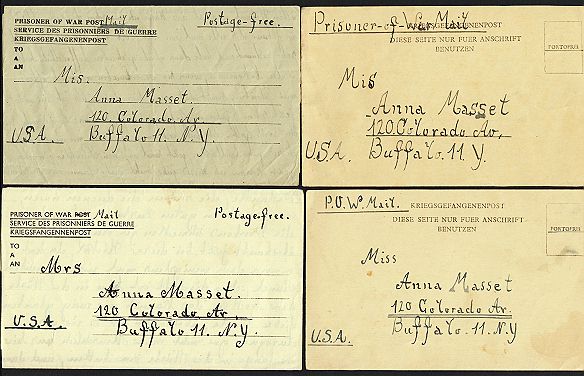 PRISONER OF WAR POST Mail
Postage-free.
SERVICE DES PRISONNIERS DE GUERRE
KRIEGSGEFANGENPOST
TO
A
AN
Mis.
Anna Masset.
120. Colorado Av.
U.S.A. Buffalo 11. N.Y.
Prisoner-of-War Mail
KRIEGSGEFANGENENPOST
DIESE SEITE NUR FUER ANSCHRIFT
BENUTZEN
PORTOFREI
Mis
Anna Masset
120. Colorado Av,
U.S.A. Buffalo. 11. Y.
PRISONER OF WAR POST Mail
Postage-free.
SERVICE DES PRISONNIERS DE GUERRE
KRIEGSFANGENNENPOST
TO
A
AN
Mrs
Anna Masset.
120 Colorado Av,
U.S.A. Buffalo 11. N.Y.
P.O.W. Mail.
KRIEGSGEFANGENENPOST
DIESE SEITE NUR FUER ANSCHRIFT
BENUTZEN
PORTOFREI
Miss
Anna Masset
120 Colorado Av.
U.S.A. Buffalo. 11. N.Y